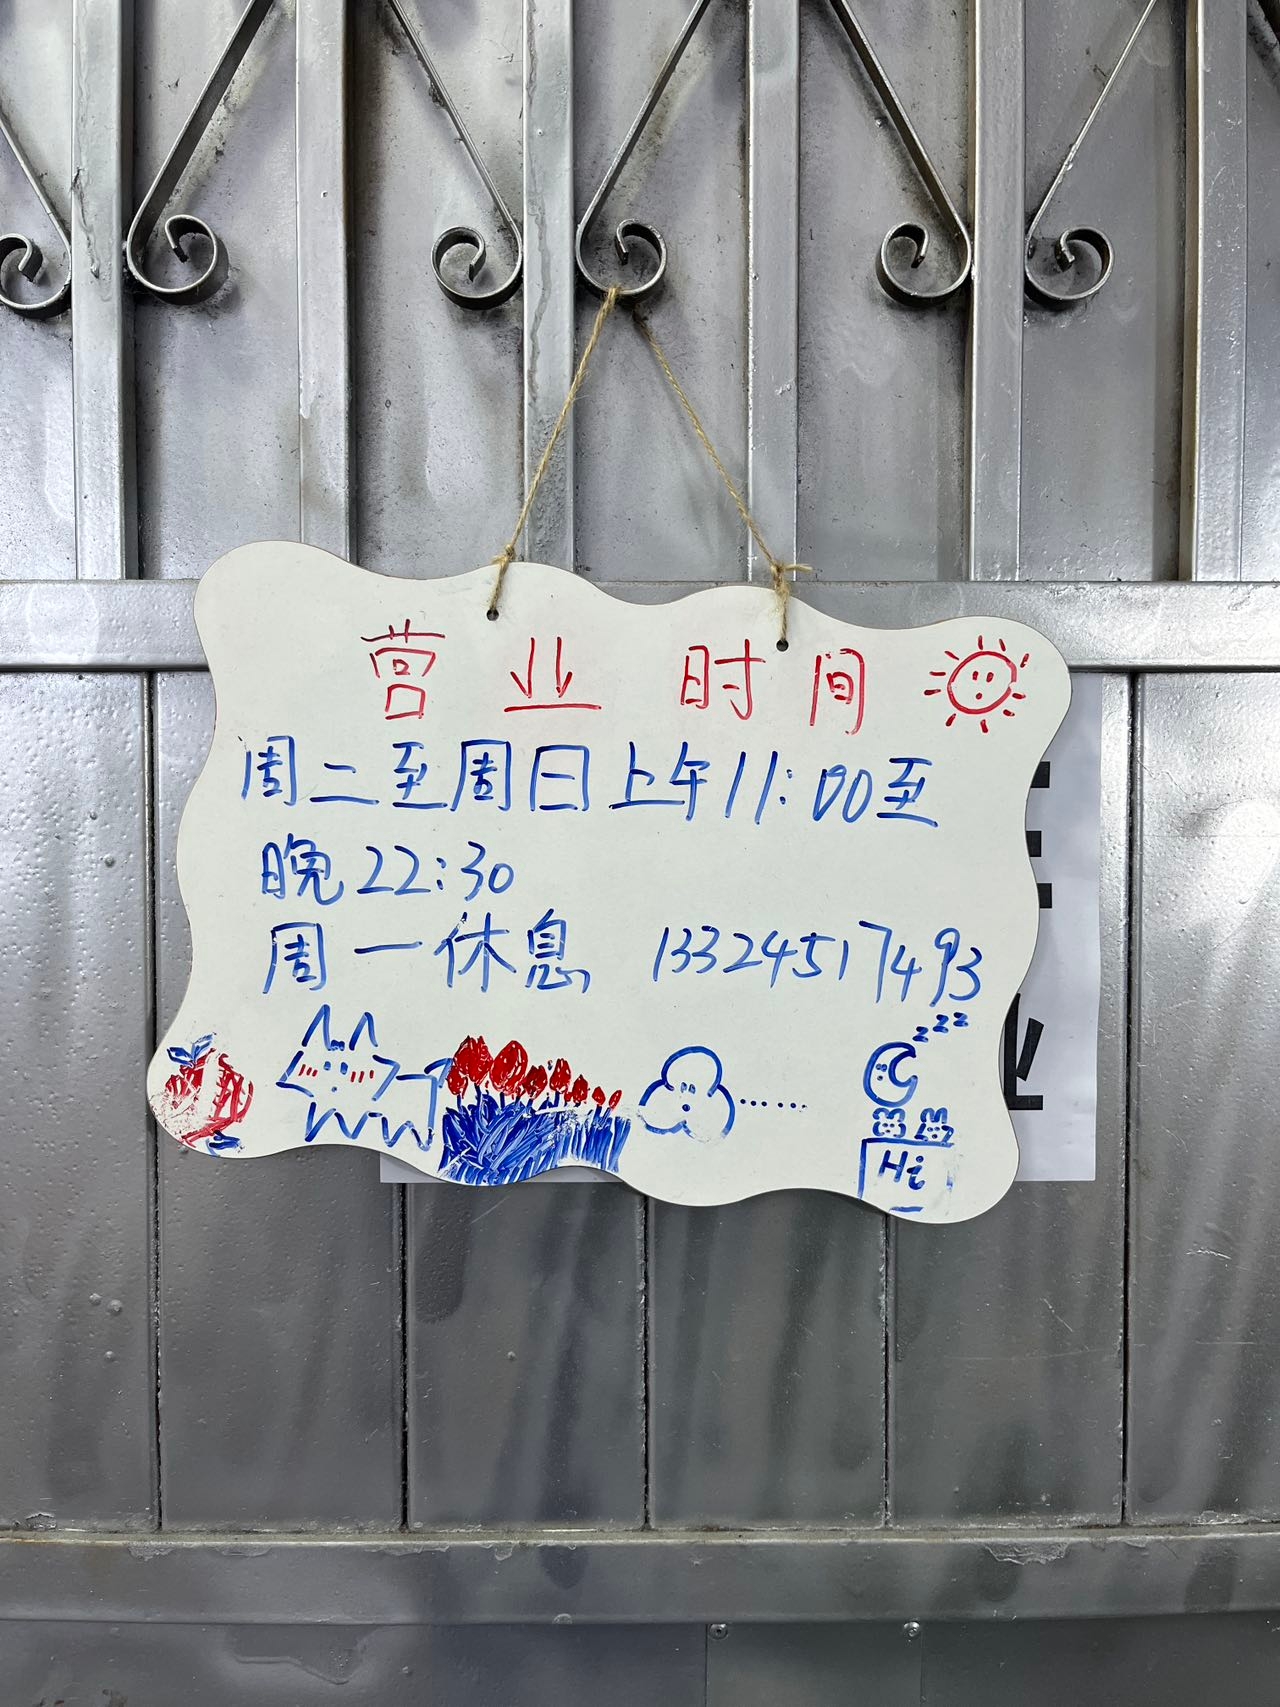 营业时间
周二至周日上午11:00至
晚22:30
周一休息 13324517493
zzz
Hi